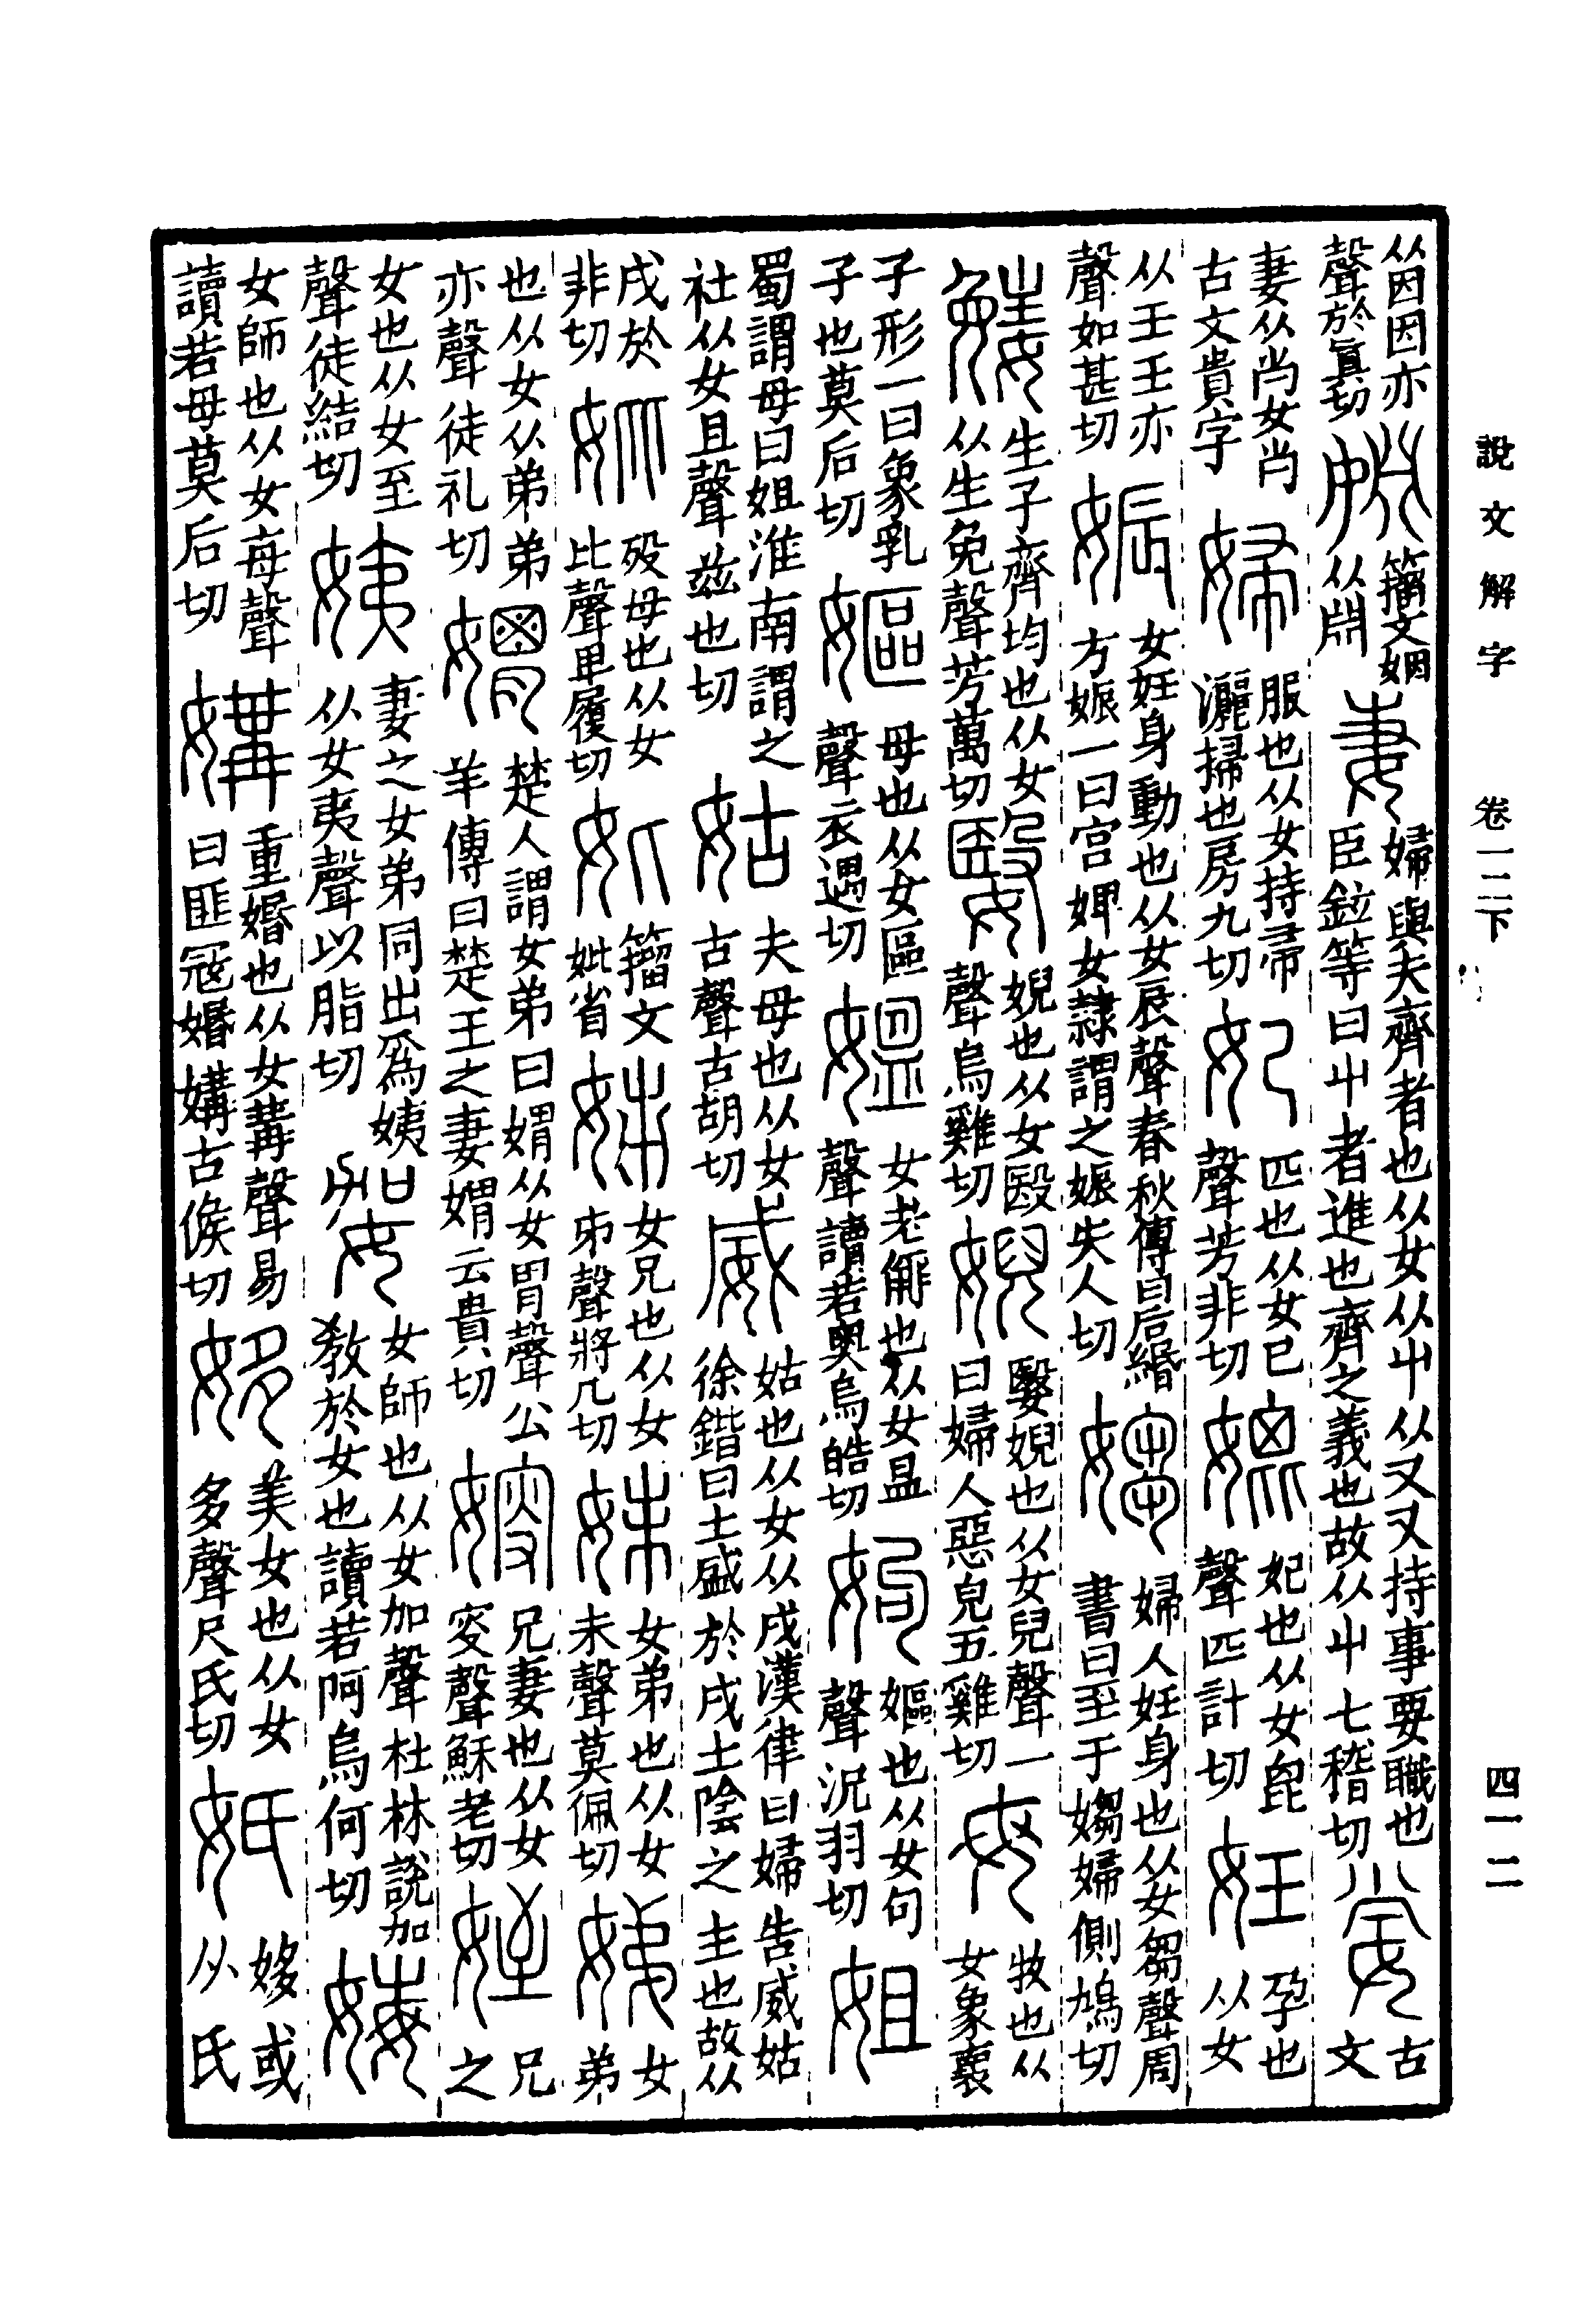 說文解字 卷一二下 四一二
从因因亦聲於眞切 婣 籒文姻从𣶒 妻 婦與夫齊者也从女从屮从又又持事要職也臣鉉等曰屮者進也齊之義也故从屮七稽切 𡜈 古文
妻从𡭙女𡭙古文貴字 婦 服也从女持帚灑掃也房九切 妃 匹也从女己聲芳非切 媲 妃也从女𣬉聲匹計切 妊 孕也从女
从壬壬亦聲如甚切 娠 女妊身動也从女辰聲春秋傳曰后緡方娠一曰宫婢女隸謂之娠失人切 媰 婦人妊身也从女芻聲周書曰至于媰婦側鳩切
㜨 生子齊均也从女从生免聲芳萬切 嫛 婗也从女殹聲烏雞切 婗 嫛婗也从女兒聲一曰婦人惡皃五雞切 母 牧也从女象褱
子形一曰象乳子也莫后切 嫗 母也从女區聲衣遇切 媼 女老偁也从女𥁕聲讀若奥烏皓切 姁 嫗也从女句聲況羽切 姐
蜀謂母曰姐淮南謂之社从女且聲兹也切 姑 夫母也从女古聲古胡切 威 姑也从女从戌漢律曰婦告威姑徐鍇曰土盛於戌土陰之主也故从
戌於非切 妣 殁母也从女比聲卑履切 𡚧 籒文妣省 姊 女兄也从女𠂔聲將几切 妹 女弟也从女未聲莫佩切 娣 女弟
也从女从弟弟亦聲徒礼切 媦 楚人謂女弟曰媦从女胃聲公羊傳曰楚王之妻媦云貴切 㛮 兄妻也从女叜聲穌老切 姪 兄之
女也从女至聲徒結切 姨 妻之女弟同出爲姨从女夷聲以脂切 妿 女師也从女加聲杜林說加教於女也讀若阿烏何切 娒
女師也从女每聲讀若母莫后切 媾 重婚也从女冓聲易曰匪寇婚媾古候切 姼 美女也从女多聲尺氏切 𡛜 姼或从氏